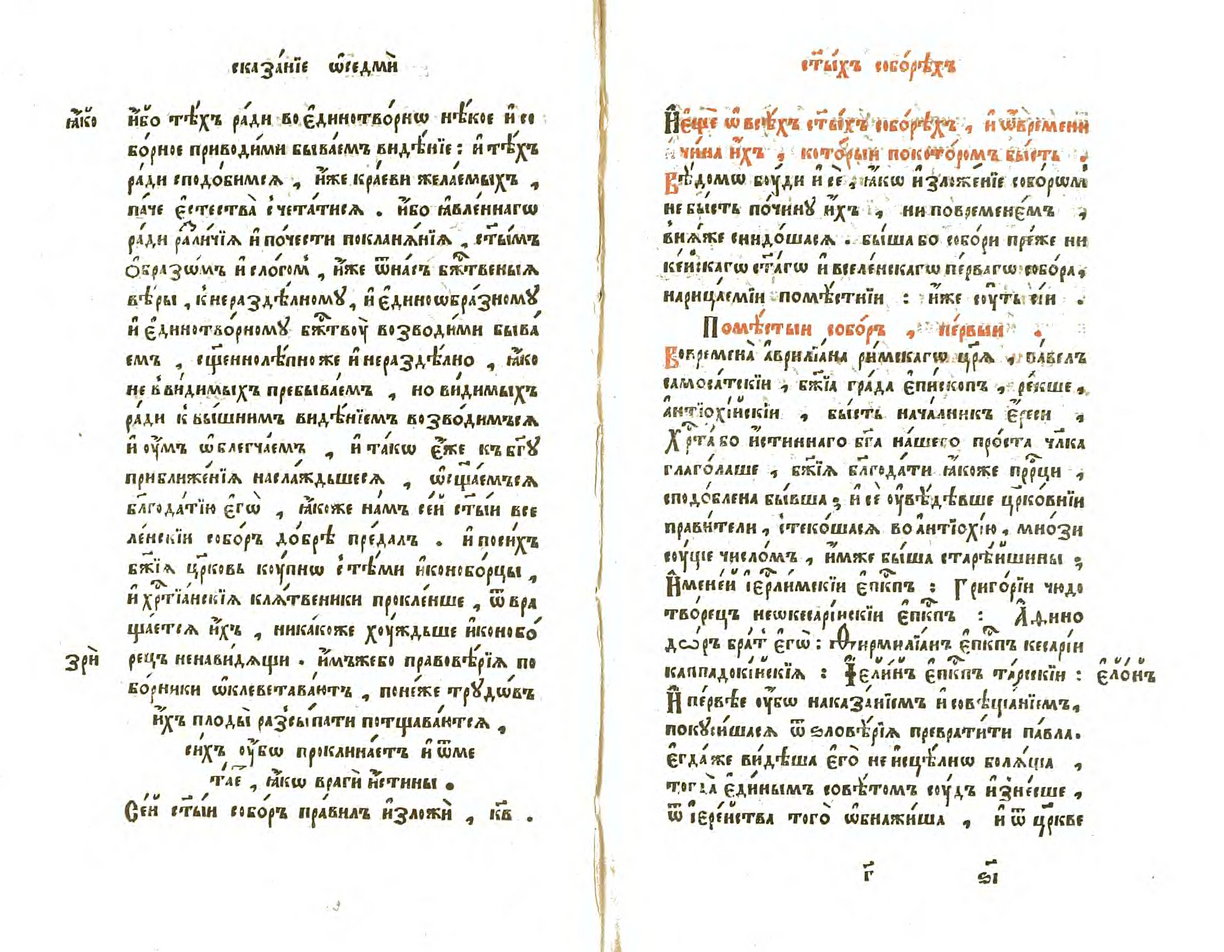 сказа́нїе ѡ҆седмѝ
ꙗ҆́кѡ
и҆́бо тѣ́хъ ра́ди во є҆динотво́рнѡ нѣ́кое и҆ со
бо́рное приводи́ми быва́емъ видѣ́нїе : и҆ тѣ́хъ
ра́ди сподо́бимсѧ , и҆́же кра́еви жела́емыхъ ,
па́че є҆стества̀ счета́тисѧ . и҆́бо ꙗ҆вле́ннагѡ
ра́ди разли́чїѧ и҆ по́чести покланѧ́нїѧ , ст҃ы́мъ
ѻ҆́бразѡмъ и҆ сло́гом , и҆́же ѿна́съ бж҃твеныѧ
вѣ́ры , к нераздѣ́лномꙋ , и҆ є҆диноѡбра́зномꙋ
и҆ є҆динотво́рномꙋ бж҃твꙋ̀ возводи́ми быва́
емъ , сщ҃еннолѣ́пно же и҆ нераздѣ́лно , ꙗ҆́ко
не в ви́димыхъ пребыва́емъ , но ви́димыхъ
ра́ди к вы́шнимъ видѣ́нїемъ возво́димъсѧ
и҆ ᲂу҆мъ ѡ҆блегча́емъ , и҆ та́кѡ є҆́же къ бг҃ꙋ
приближе́нїѧ наслажды́шесѧ , ѡ҆сщ҃а́емъсѧ
блг҃ода́тїю є҆гѡ̀ , ꙗ҆́коже на́мъ се́й ст҃ы́и все
ле́нскїи собо́ръ до́брѣ преда́лъ . и҆ поси́хъ
бж҃їѧ цр҃ковь кꙋ́пнѡ с тѣ́ми и҆конобо́рцы ,
и҆ хрⷭ҇тїа́нскїѧ клѧ́твеники прокле́нше , ѿвра
ща́етсѧ и҆́хъ , ника́коже хꙋ́ждьше и҆конобо́
зрѝ
рецъ ненави́дѧщи . и҆́мъжебо правовѣ́рїѧ по
бо́рники ѡ҆клеветава́ютъ , поне́же трꙋдѡ́въ
и҆́хъ плоды̀ разсы́пати потщава́ютсѧ ,
си́хъ ᲂу҆́бѡ проклина́етъ и҆ ѿме
та́е , ꙗ҆́кѡ врагѝ и҆́стины .
Се́й ст҃ы́и собо́ръ пра́вилъ и҆зложѝ , кв҃ .
ст҃ы́хъ собо́рѣхъ
И҆ є҆щѐ ѡ всѣ́хъ ст҃ы́хъ собо́рѣхъ , и҆ ѡ҆ времени
и҆ чи́на и҆́хъ , кото́рыи по кото́ромъ бы́сть .
Вѣ́домѡ бꙋ́ди и҆ сѐ , ꙗ҆́кѡ и҆зложе́нїе собо́рѡм
не бы́сть по чи́нꙋ и҆́хъ , ни по временє́мъ ,
в нѧ́же снидо́шасѧ . бы́ша бо собо́ри пре́же ни
ке́искагѡ ст҃а́гѡ и҆ вселе́нскагѡ пе́рвагѡ собо́ра ,
нарица́емїи помѣ́стнїи : и҆́же сꙋ́ть сїѝ .
Помѣ́стыи собо́ръ , пе́рвыи .
Во времена̀ а҆врилїа́на ри́мскагѡ цр҃ѧ̀ , па́велъ
самоса́тскїи , бж҃їѧ гра́да є҆пи́скоп , ре́кше ,
а҆нтїохі́искїи , бы́сть нача́лникъ є҆́реси ,
Хрⷭ҇та̀ бо и҆́стиннаго бг҃а на́шего про́ста чл҃ка
глаго́лаше , бж҃їѧ блг҃ода́ти ꙗ҆́коже прⷪ҇ро́цы ,
сподо́блена бы́вша ; и҆ сѐ ᲂу҆вѣ́дѣвше цр҃ко́внїи
прави́тели , стеко́шасѧ во а҆нтїохі́ю , мно́зи
сꙋ́ще число́мъ , и҆́мже бы́ша старѣ́ишины ;
И҆мене́й і҆ерⷭ҇ли́мскїи є҆пⷭ҇кпъ : Григо́рїи чюдо
тво́рецъ неѡкесарі́искїи є҆пⷭ҇кпъ : А҆ѳино
дѡ́ръ бра́тъ є҆гѡ̀ : Фирмилїа́нъ є҆пⷭ҇кпъ кесарі́и
каппадокі́искїѧ : І҆ели́нъ є҆пⷭ҇кпъ та́рсскїи : є҆ло́нъ
И҆ пе́рвѣе ᲂу҆́бѡ наказа́нїемъ и҆ совѣща́нїемъ ,
покꙋси́шасѧ ѿ ѕловѣ́рїѧ преврати́ти па́вла .
Є҆гда́же ви́дѣша є҆го̀ неисцѣ́лнѡ болѧ́ща ,
тогда̀ є҆ди́нымъ совѣ́томъ сꙋ́дъ и҆зне́сше ,
ѿ і҆ере́йства того̀ ѡ҆бнажи́ша , и҆ ѿ цр҃кве
г҃ ѕ҃і